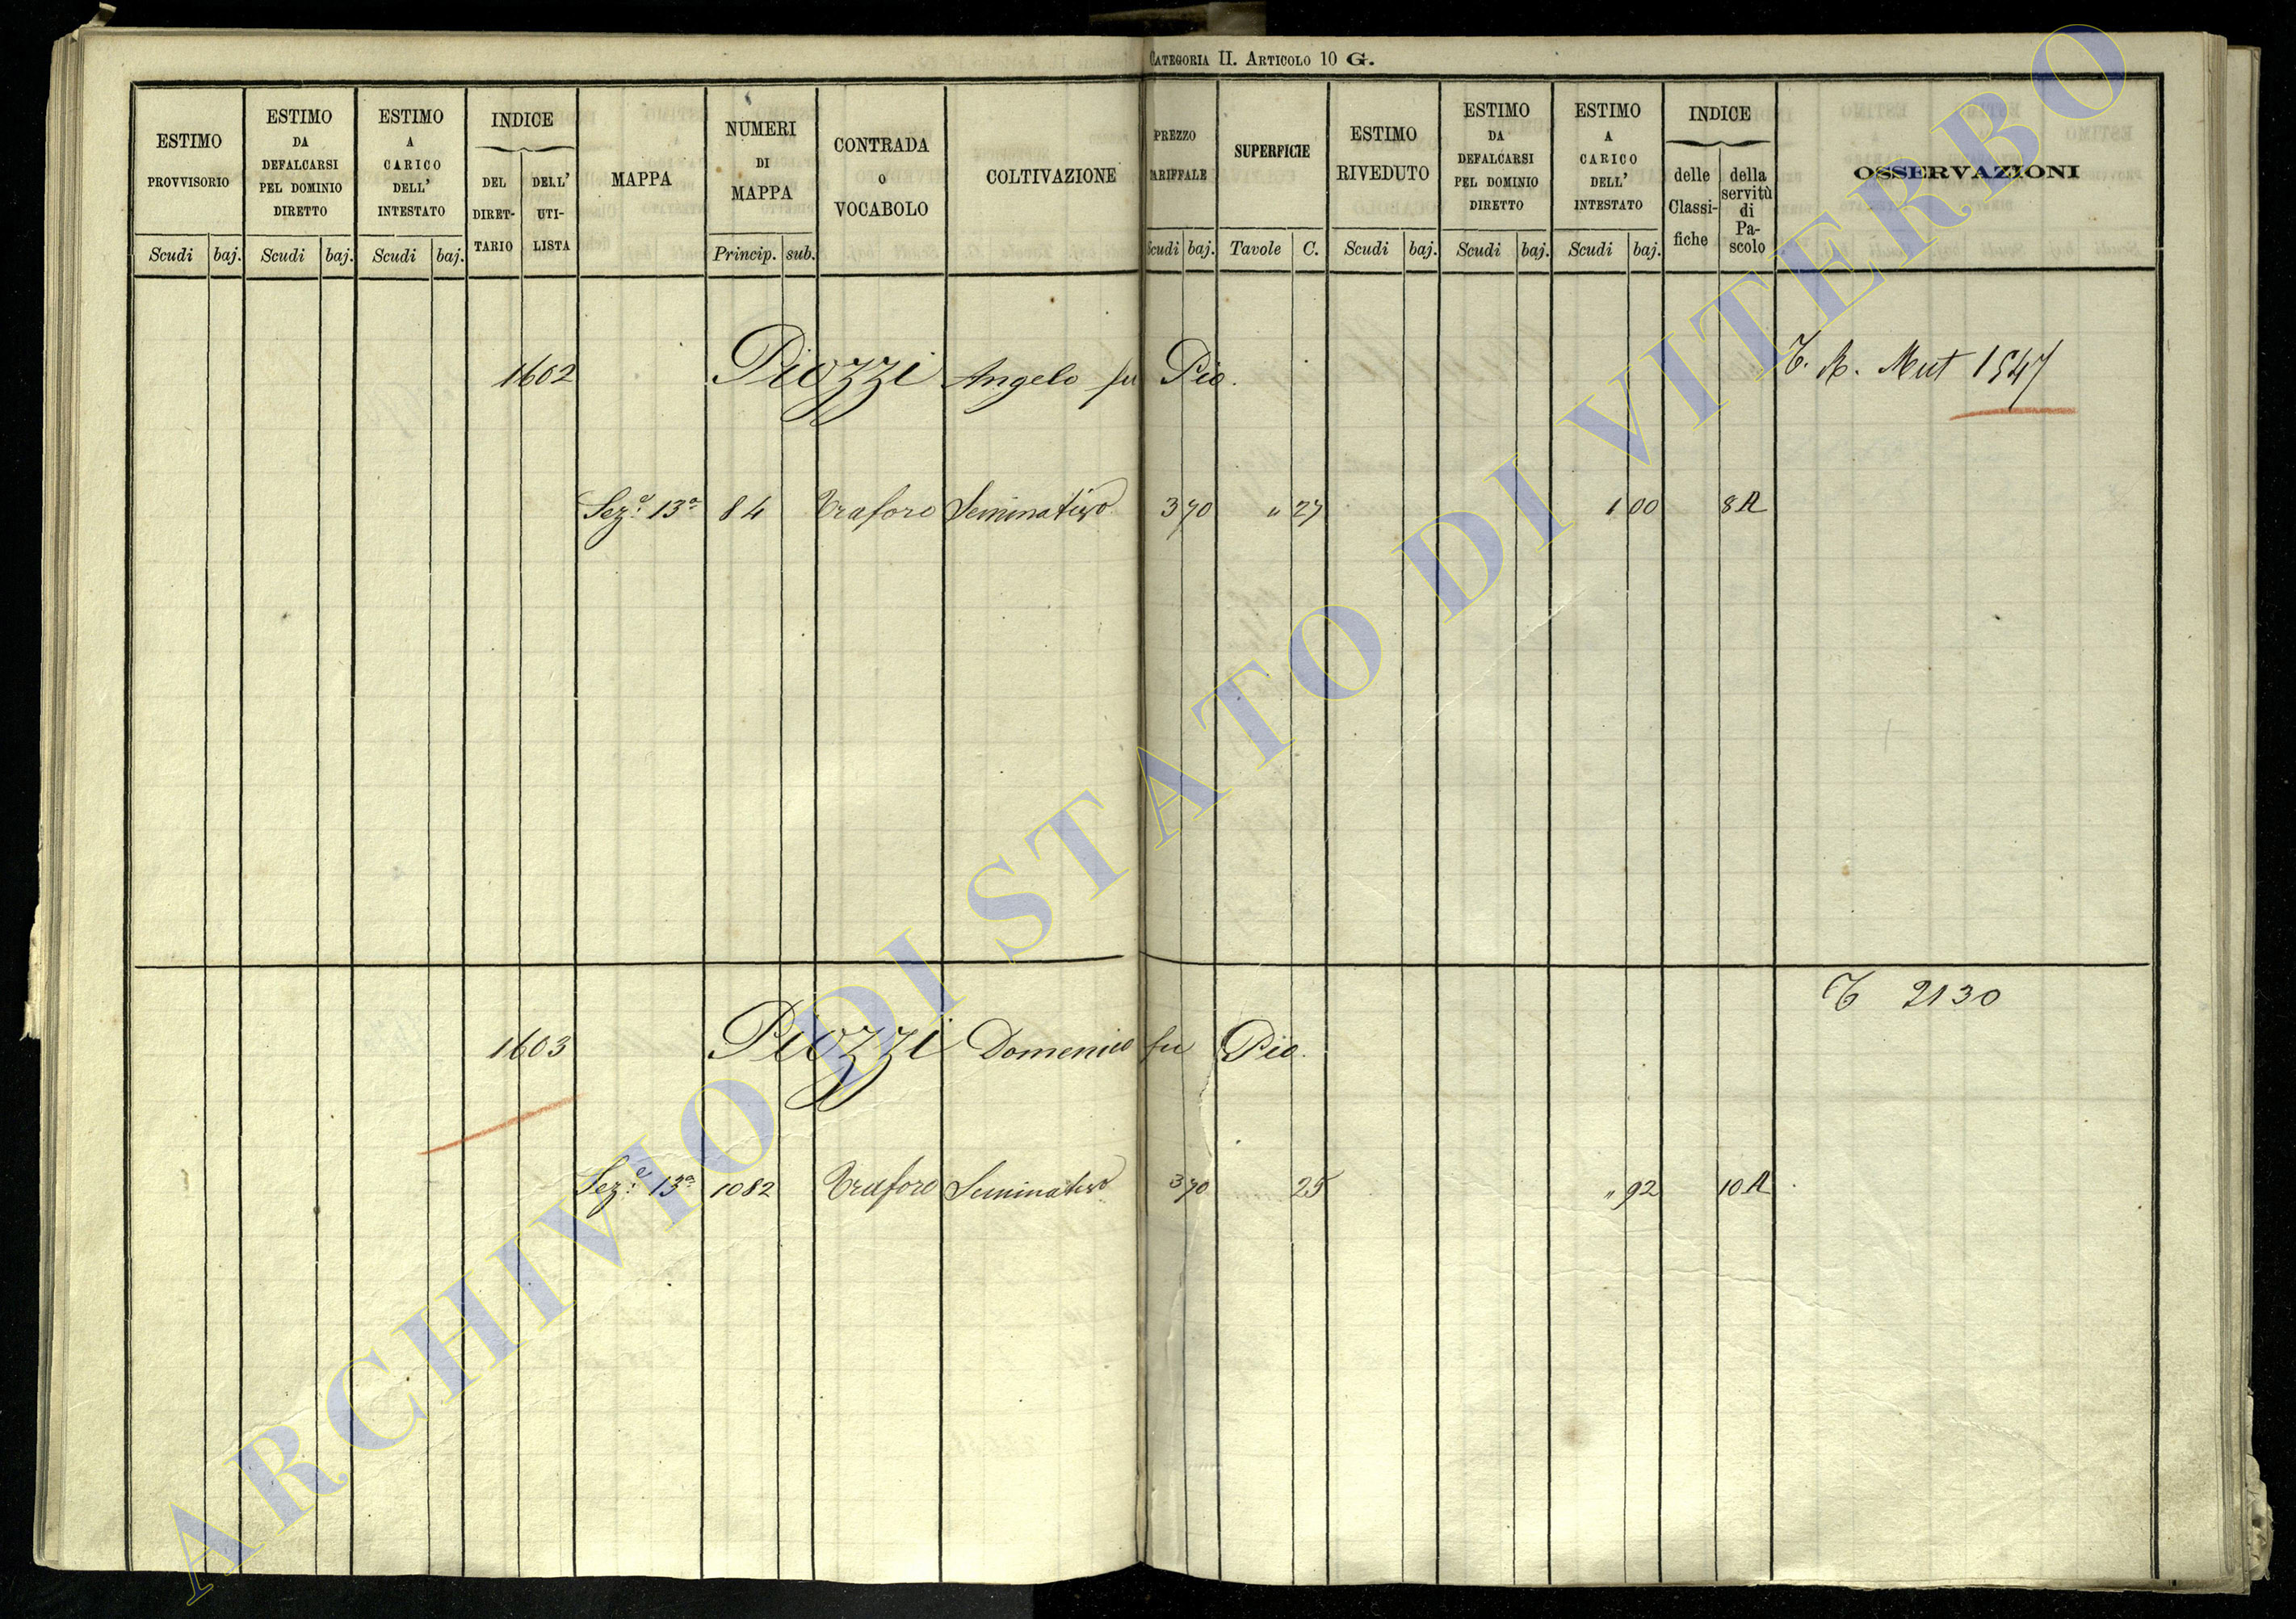 CATEGORIA II. ARTICOLO 10 G.
ESTIMO PROVVISORIO
ESTIMO DA DEFALCARSI PEL DOMINIO DIRETTO
ESTIMO A CARICO DELL' INTESTATO
INDICE
DEL DIRETTARIO
DELL' UTILISTA
MAPPA
NUMERI DI MAPPA
CONTRADA O VOCABOLO
COLTIVAZIONE
PREZZO TARIFFALE
SUPERFICIE
ESTIMO RIVEDUTO
ESTIMO DA DEFALCARSI PEL DOMINIO DIRETTO
ESTIMO A CARICO DELL' INTESTATO
INDICE
delle Classifiche
della servitù di Pascolo
OSSERVAZIONI
Scudi baj. Scudi baj. Scudi baj. Princip. sub. Scudi baj. Tavole C. Scudi baj. Scudi baj. Scudi baj.
1602 Piozzi Angelo fu Pio. T. R. Mut 1547
Sez.e 13a 84 Traforo Seminativo 3 70 " 27 1 00 8 A
T 2130
1603 Piozzi Domenico fu Pio.
Sez.e 13a 1082 Traforo Seminativo 3 70 25 " 92 10 A
ARCHIVIO DI STATO DI VITERBO